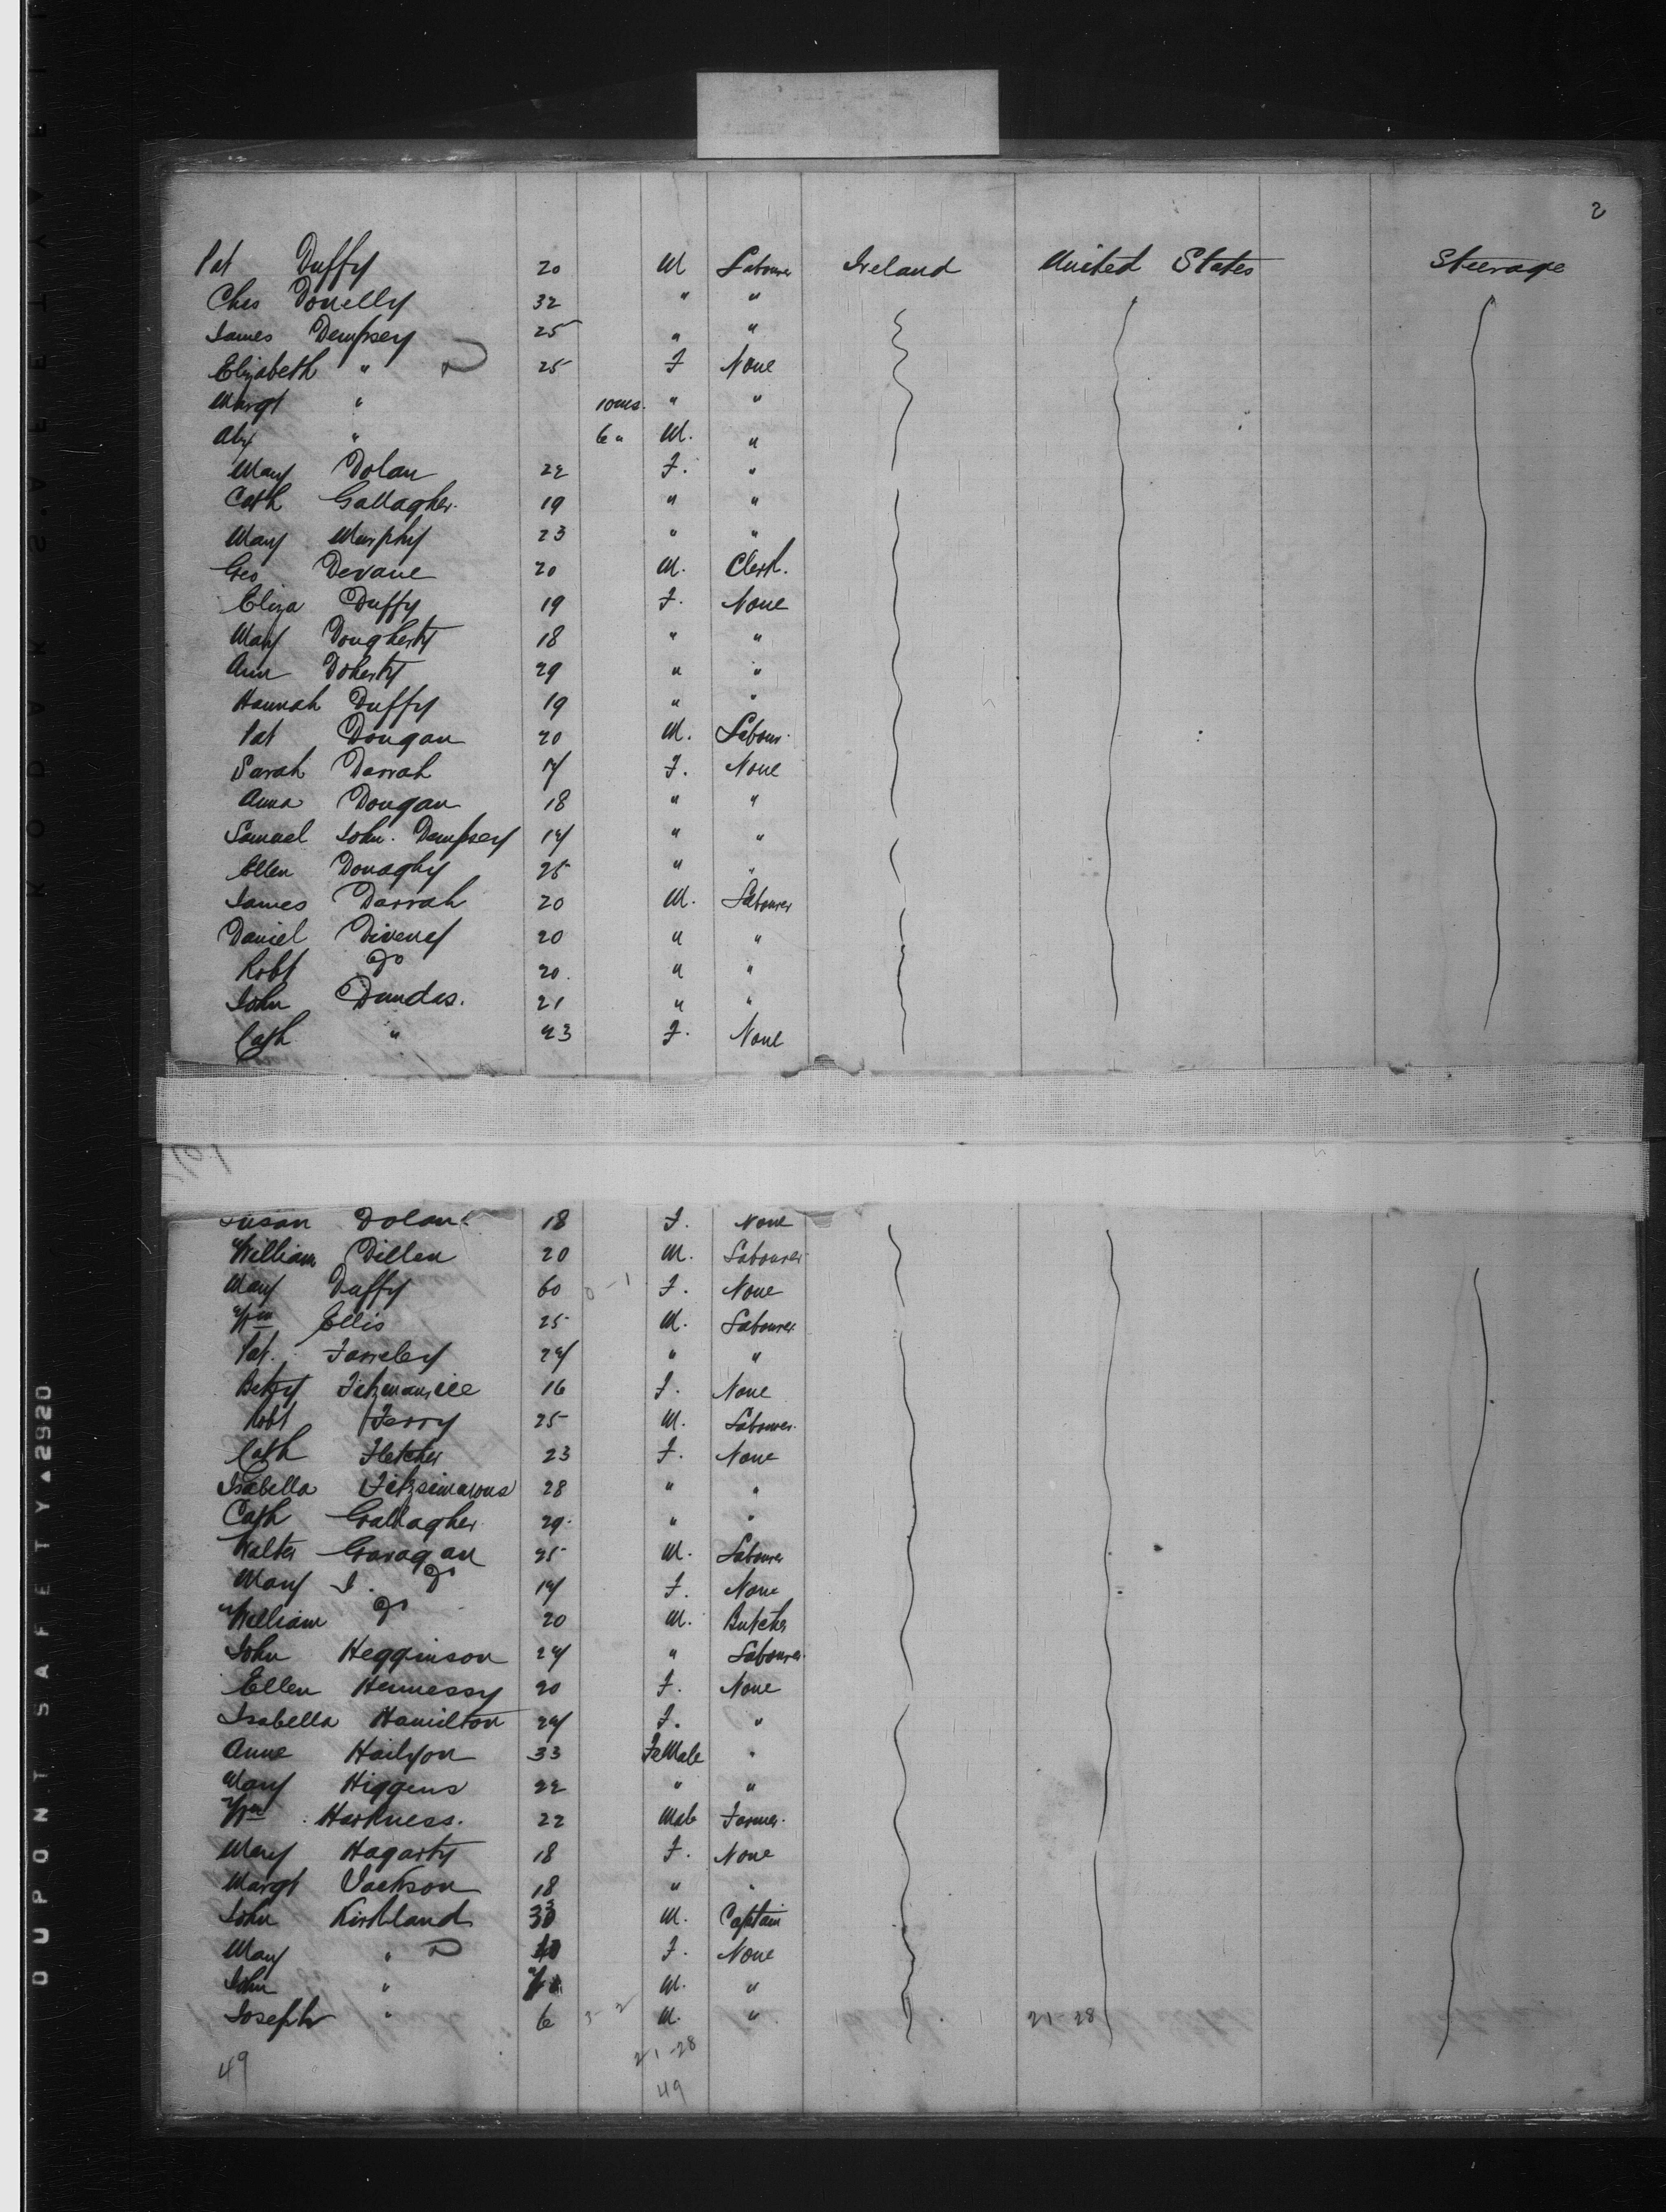 2
Pat Duffy 20 M Labourer Ireland United States Steerage
Chas Donelly 32 " "
James Dempsey 25 " "
Elizabeth " 25 F None
Margt " 10ms. " "
Alx " 6 " M. "
Mary Dolan 22 F. "
Cath Gallagher. 19 " "
Mary Murphy 23 " "
Geo Devane 20 M. Clerk.
Eliza Duffy 19 F. None
Mary Dougherty 18 " "
Ann Doherty 29 " "
Hannah Duffy 19 " "
Pat Dougan 20 M. Labour.
Sarah Darrah F. None
Anna Dougan 18 " "
Samuel John. Dempsey " "
Ellen Donaghy 25 " "
James Darrah 20 M. Labourer
Daniel Diveney 20 " "
Robt Do 20. " "
John Dundas. 21 " "
Cath " 23 F. None
Susan Dolan. 18 F. None
William Dillen 20 M. Labourer
Mary Duffy 60 0-1 F. None
Wm Ellis 25 M. Labourer
Pat. Farreley " "
Betsy Fitzmaurice 16 F. None
Robt Ferry 25 M. Labourer.
Cath Fletcher 23 F. None
Isabella Fitzsimmons 28 " "
Cath Gallagher. 29. " "
Walter Gavagan 25 M. Labourer
Mary J. Do F. None
William Do 20 M. Butcher
John Hegginson " Labourer
Ellen Hennessy 20 F. None
Isabella Hamilton F. "
Anne 33 FeMale "
Mary Higgens 22 " "
Wm Harkness. 22 Male Farmer.
Mary Hagarty 18 F. None
Margt Jackson 18 " "
John Kirkland 33 M. Captain
Mary " F. None
John " M. "
Joseph " 6 3-2 M. " 21-28
21-28
49 49
KODAK SAFETY
DUPONT SAFETY ▲2920